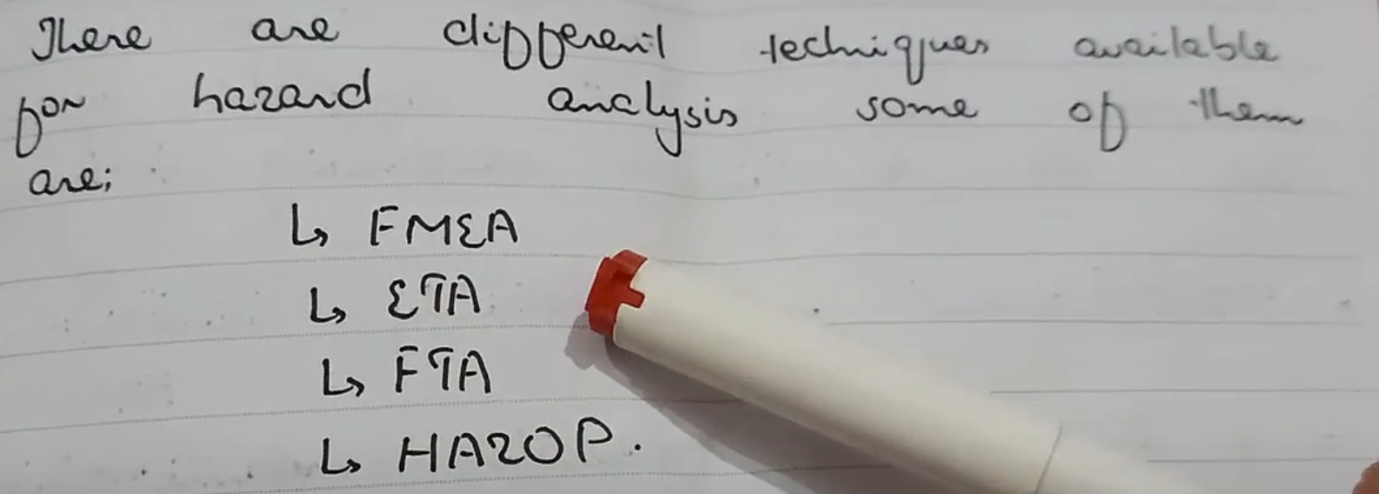 There are different techniques available
for hazard analysis some of them
are;
↳ FMEA
↳ ETA
↳ FTA
↳ HAZOP.